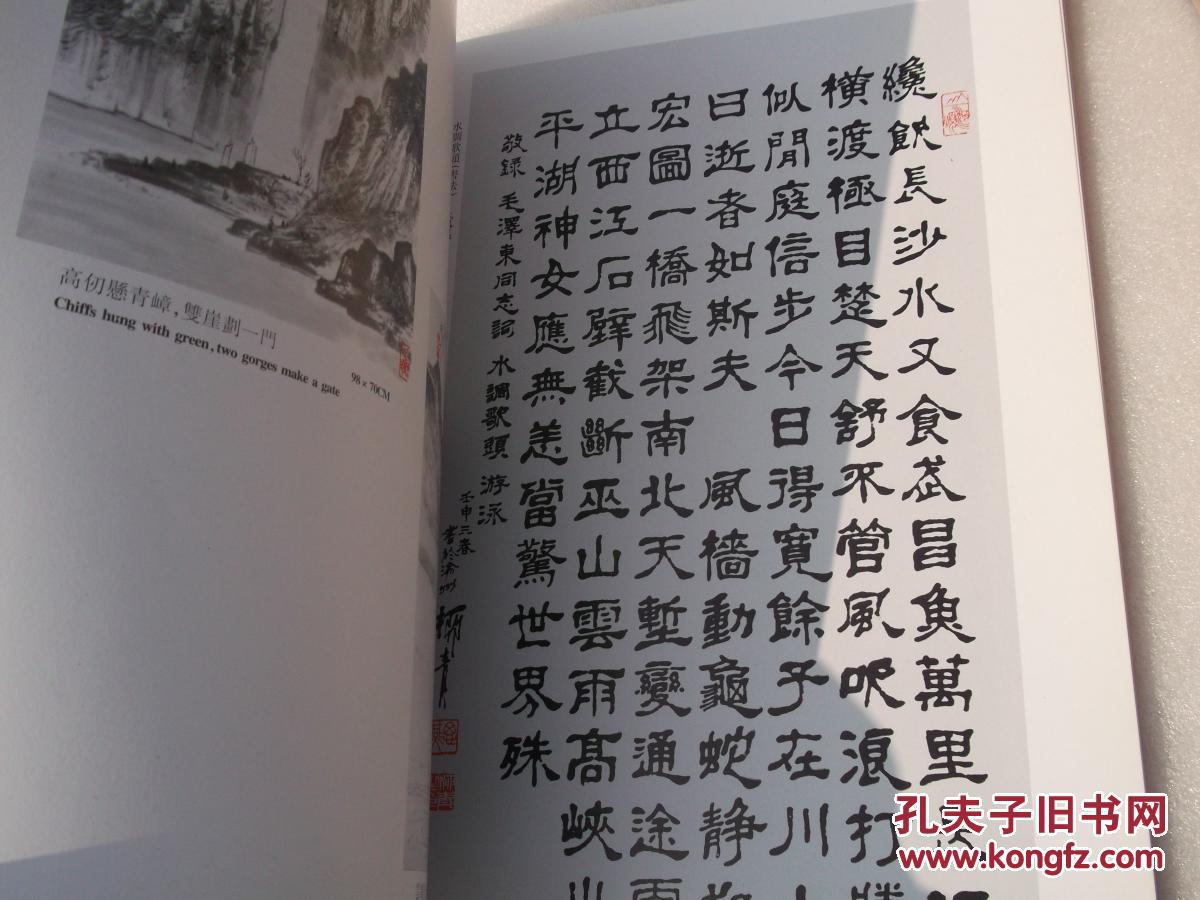 高仞懸青嶂，雙崖劃一門
Chiffs hung with green, two gorges make a gate
98 × 70CM
水調歌頭（書法）
纔飲長沙水又食武昌魚萬里
橫渡極目楚天舒不管風吹浪打
似閒庭信步今日得寬餘子在川
曰逝者如斯夫 風檣動龜蛇静
宏圖一橋飛架南北天塹變通途
立西江石壁截斷巫山雲雨高峽
平湖神女應無恙當驚世界殊
敬録 毛澤東同志詞 水調歌頭 游泳
壬申三春
書於渝州
孔夫子旧书网
www.kongfz.com